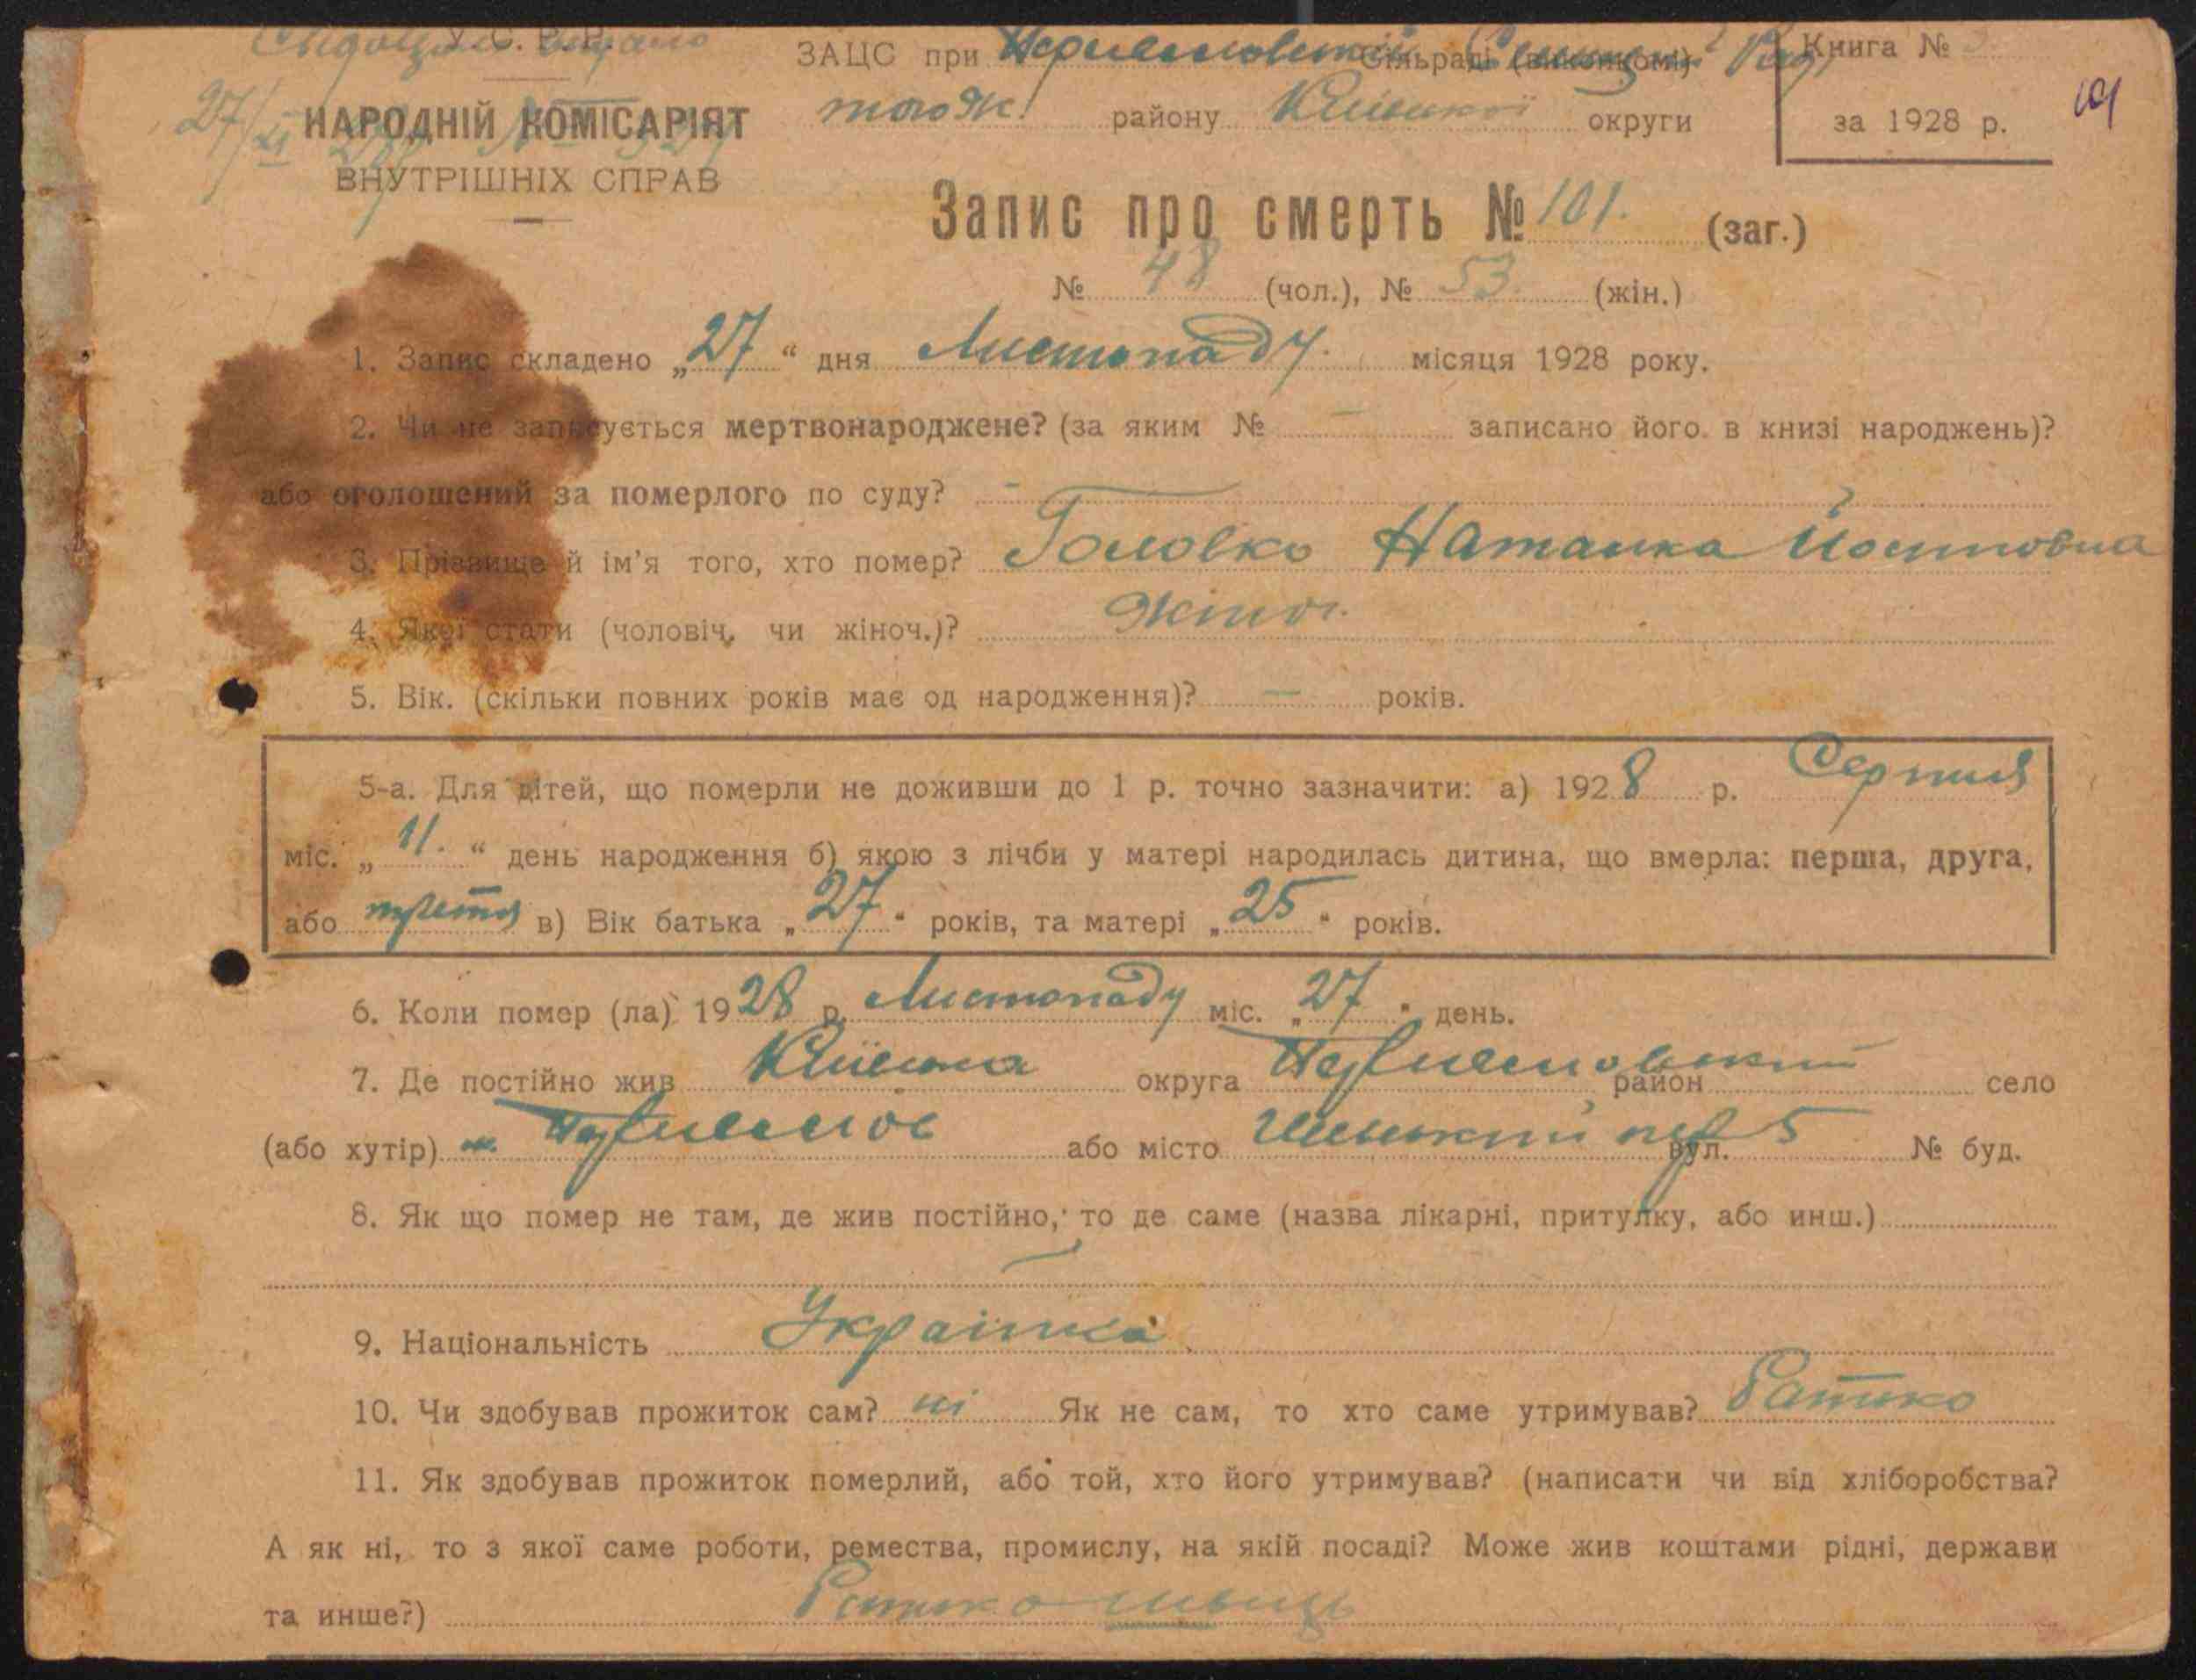 У. С. Р. Р.
Свідоцтво видано
27/XI 28 р. №
НАРОДНІЙ КОМІСАРІЯТ
ВНУТРІШНІХ СПРАВ
ЗАЦС при Сільраді (виконкомі)
того ж району Київської округи
Книга №
за 1928 р.
101
Запис про смерть № 101. (заг.)
№ 48 (чол.), № 53. (жін.)
1. Запис складено „27“ дня Листопаду. місяця 1928 року.
2. Чи не записується мертвонароджене? (за яким № — записано його в книзі народжень)?
або оголошений за померлого по суду? —
3. Прізвище й ім'я того, хто помер? Головко Наталка
4. Якої стати (чоловіч. чи жіноч.)? Жіноч.
5. Вік. (скільки повних років має од народження)? — років.
5-а. Для дітей, що померли не доживши до 1 р. точно зазначити: а) 1928 р. Серпня
міс. „11.“ день народження б) якою з лічби у матері народилась дитина, що вмерла: перша, друга,
або третя в) Вік батька „27“ років, та матері „25“ років.
6. Коли помер (ла) 1928 р. Листопаду міс. „27“ день.
7. Де постійно жив Київська округа район село
(або хутір) м. або місто пер 5 вул. № буд.
8. Як що помер не там, де жив постійно, то де саме (назва лікарні, притулку, або инш.)
—
9. Національність Українка
10. Чи здобував прожиток сам? ні Як не сам, то хто саме утримував? Батько
11. Як здобував прожиток померлий, або той, хто його утримував? (написати чи від хліборобства?
А як ні, то з якої саме роботи, ремества, промислу, на якій посаді? Може жив коштами рідні, держави
та инше?) Батько